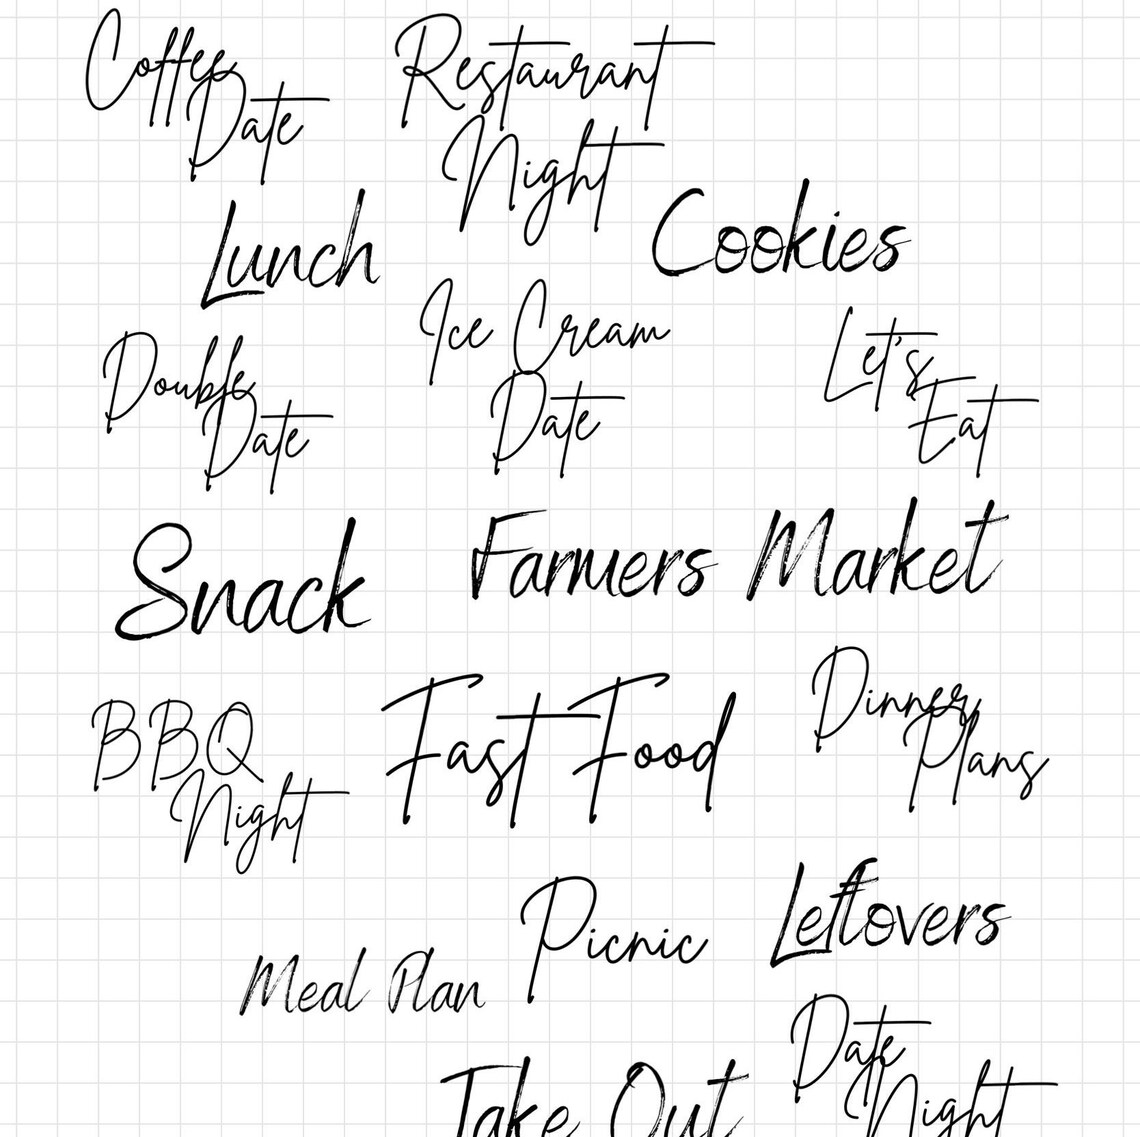 Coffee
Date
Restaurant
Night
Lunch
Cookies
Ice Cream
Date
Double
Date
Let's
Eat
Snack
Farmers Market
BBQ
Night
Fast Food
Dinner
Plans
Picnic
Leftovers
Meal Plan
Date
Night
Take Out